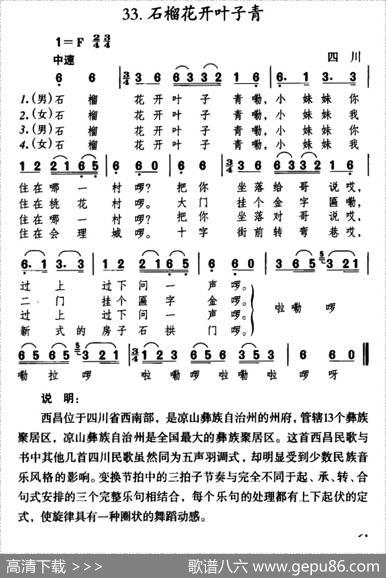 33. 石榴花开叶子青
1=F 2/4 3/4
中速 四 川
6 6 3/4 3 6 6 3 3 2 1 6 6. 1 3. 3
1.(男)石 榴 花 开 叶 子 青 嘞，小 妹 妹 你
2.(女)石 榴 花 开 叶 子 青 嘞，小 妹 妹 我
3.(男)石 榴 花 开 叶 子 青 嘞，小 妹 妹 你
4.(女)石 榴 花 开 叶 子 青 嘞，小 妹 妹 我
住 在 哪 一 村 啰？ 把 你 坐 落 给 哥 说 哎，
住 在 桃 花 村 啰。 大 门 挂 个 金 字 匾 嘞，
住 在 哪 一 村 啰？ 把 你 坐 落 对 哥 说 哎，
住 在 会 理 城 啰。 十 字 街 前 转 弯 巷 哎，
过 上 过 下 问 一 声 啰。
二 门 挂 个 匾 字 金 啰。
过 上 过 下 问 一 声 啰。
新 式 的 房 子 石 拱 门 啰。
啦 嘞 啰
嘞 拉 啰 啦 嘞 啦 啰 啦 啰 呀。
说 明：
西昌位于四川省西南部，是凉山彝族自治州的州府，管辖13个彝族
聚居区，凉山彝族自治州是全国最大的彝族聚居区。这首西昌民歌与
书中其他几首四川民歌虽然同为五声羽调式，却明显受到少数民族音
乐风格的影响。变换节拍中的三拍子节奏与完全不同于起、承、转、合
句式安排的三个完整乐句相结合，每个乐句的处理都有上下起伏的定
式，使旋律具有一种圈状的舞蹈动感。
高清下载 >>>
歌谱八六 www.gepu86.com